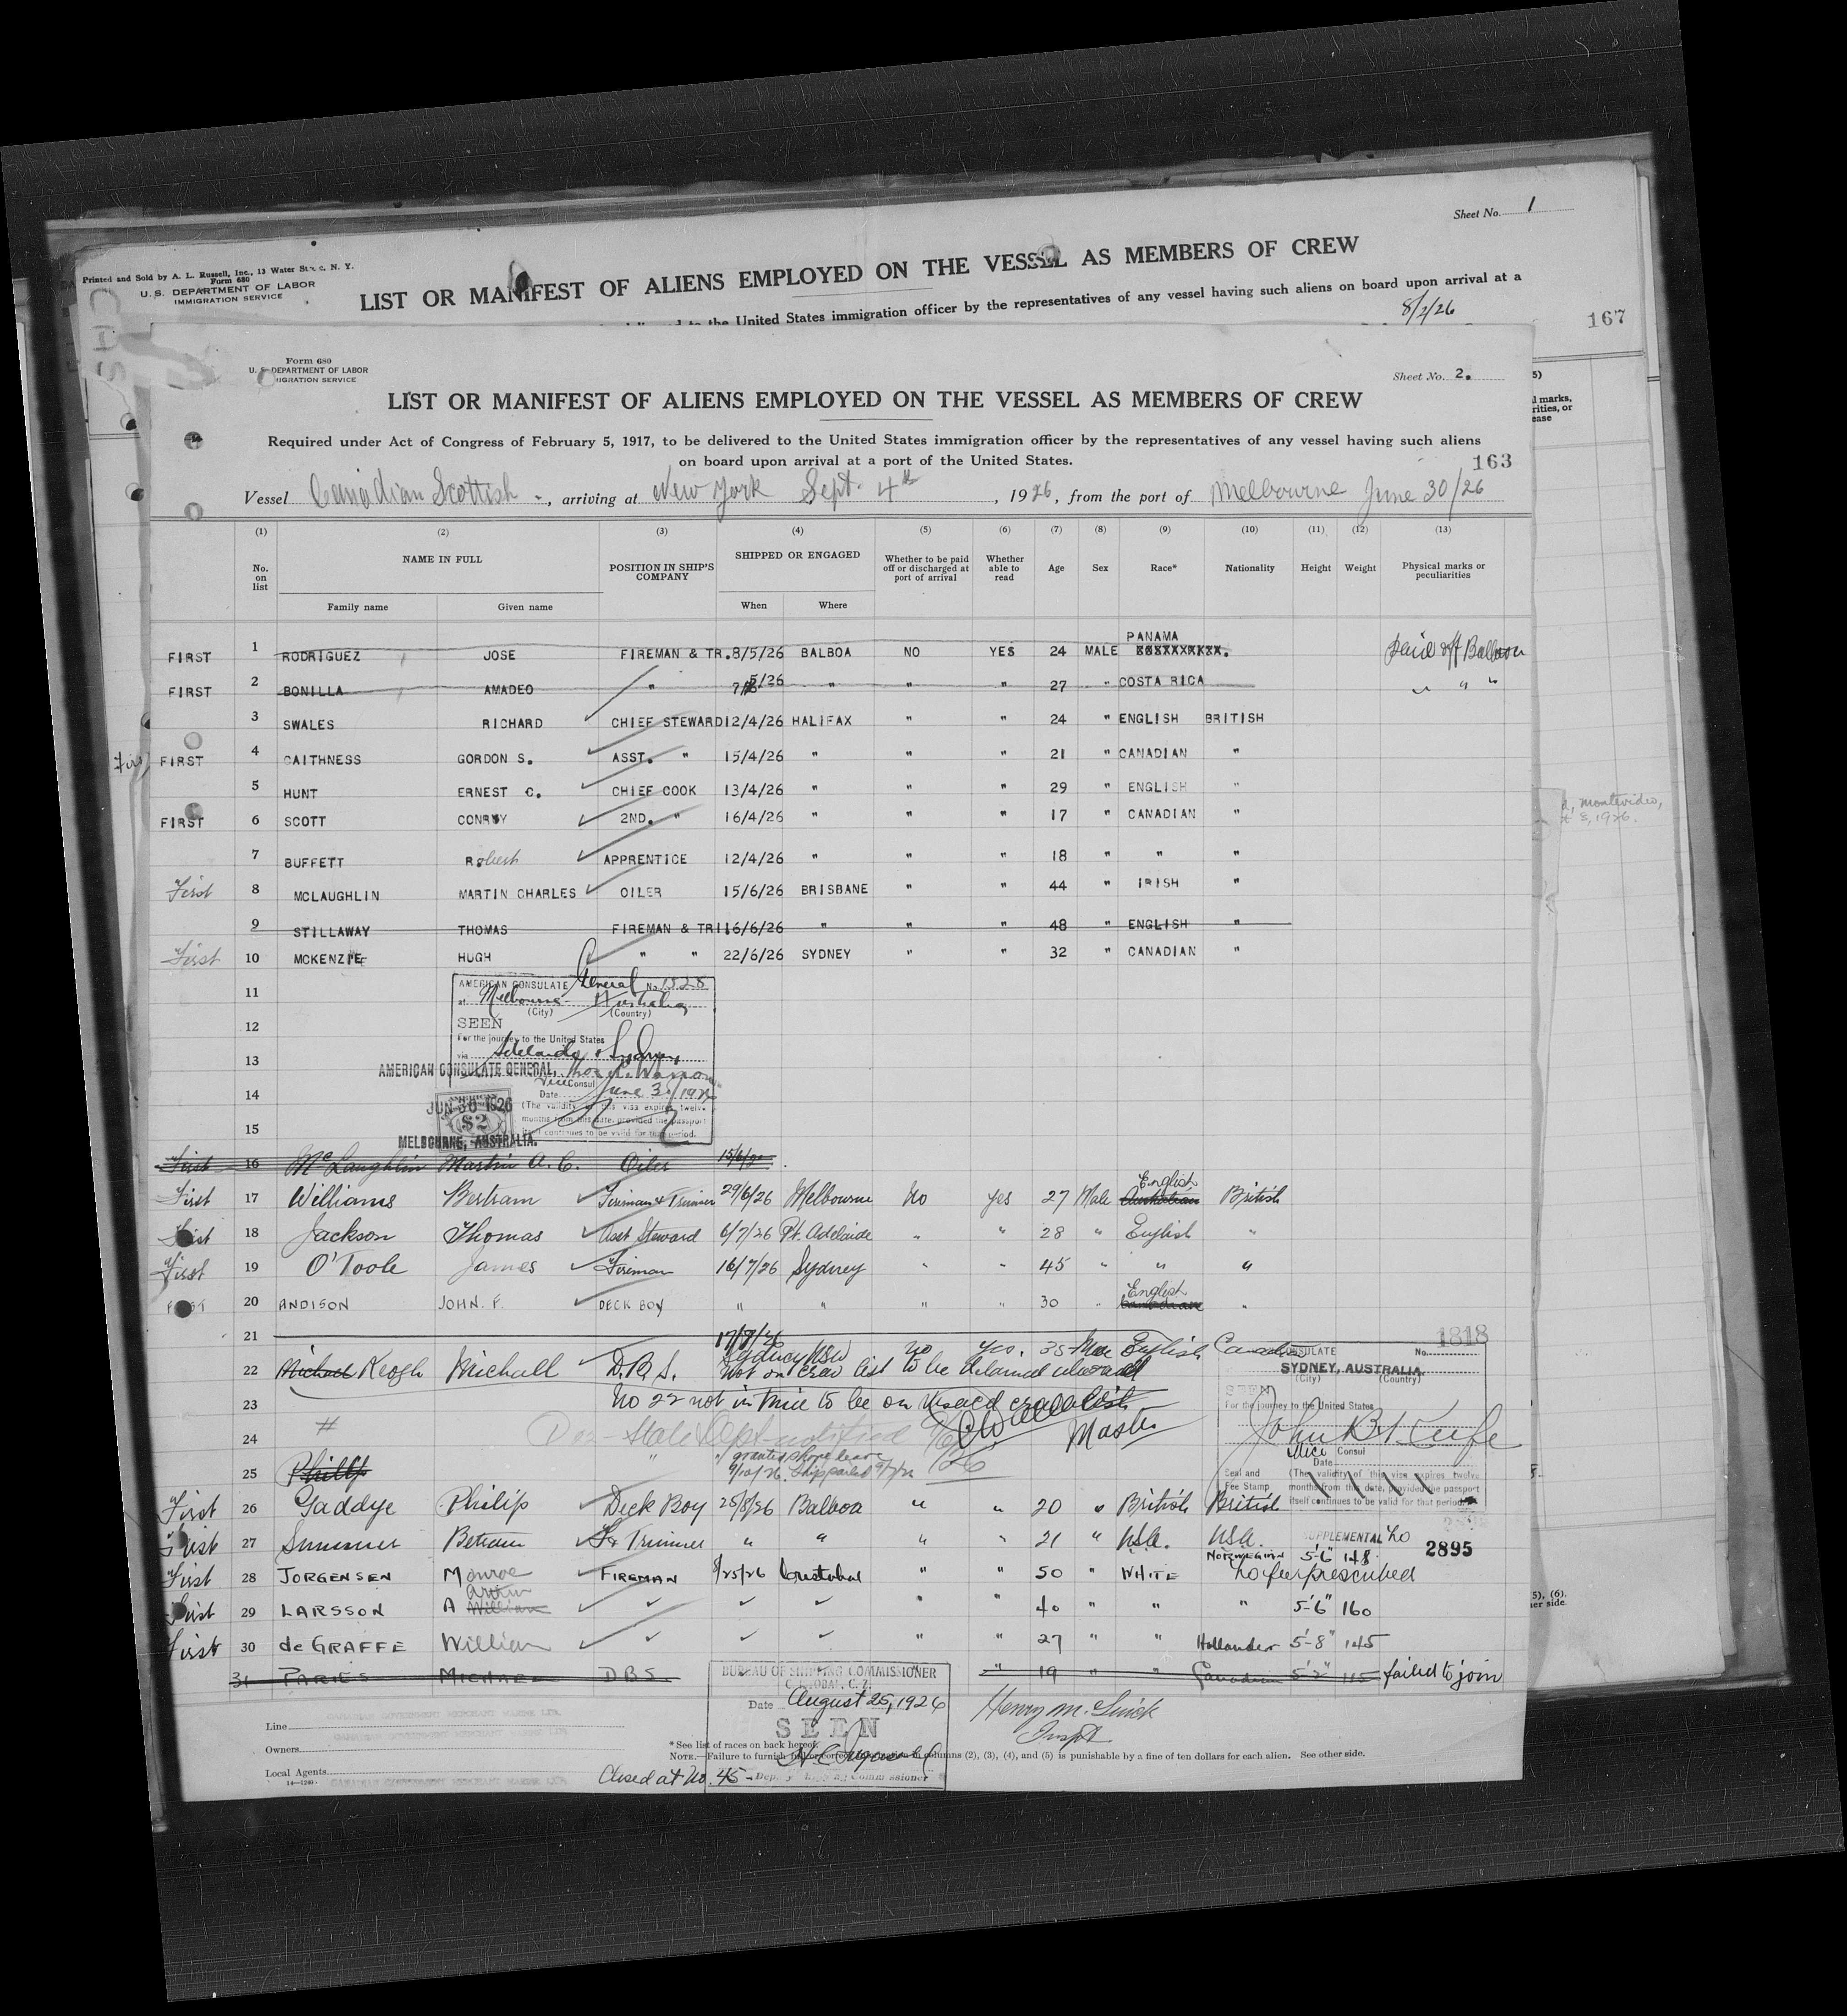 Sheet No. 1
Printed and Sold by A. L. Russell, Inc., 13 Water St., N. Y.
Form 680
U. S. DEPARTMENT OF LABOR
IMMIGRATION SERVICE
LIST OR MANIFEST OF ALIENS EMPLOYED ON THE VESSEL AS MEMBERS OF CREW
the United States immigration officer by the representatives of any vessel having such aliens on board upon arrival at a
8/2/26
167
Form 680
U. S. DEPARTMENT OF LABOR
IGRATION SERVICE
Sheet No. 2.
LIST OR MANIFEST OF ALIENS EMPLOYED ON THE VESSEL AS MEMBERS OF CREW
Required under Act of Congress of February 5, 1917, to be delivered to the United States immigration officer by the representatives of any vessel having such aliens
on board upon arrival at a port of the United States.
163
Vessel Canadian Scottish, arriving at New York Sept. 4th, 1926, from the port of Melbourne June 30/26
(1) (2) (3) (4) (5) (6) (7) (8) (9) (10) (11) (12) (13)
No. on list NAME IN FULL POSITION IN SHIP'S COMPANY SHIPPED OR ENGAGED Whether to be paid off or discharged at port of arrival Whether able to read Age Sex Race* Nationality Height Weight Physical marks or peculiarities
Family name Given name When Where
PANAMA
FIRST 1 RODRIGUEZ JOSE FIREMAN & TR. 8/5/26 BALBOA NO YES 24 MALE Paid off Balboa
FIRST 2 BONILLA AMADEO " 5/26 " " " 27 " COSTA RICA " " "
3 SWALES RICHARD CHIEF STEWARD 12/4/26 HALIFAX " " 24 " ENGLISH BRITISH
FIRST 4 CAITHNESS GORDON S. ASST. " 15/4/26 " " " 21 " CANADIAN "
5 HUNT ERNEST C. CHIEF COOK 13/4/26 " " " 29 " ENGLISH "
FIRST 6 SCOTT CONROY 2ND. " 16/4/26 " " " 17 " CANADIAN "
7 BUFFETT Robert APPRENTICE 12/4/26 " " " 18 " " "
First 8 MCLAUGHLIN MARTIN CHARLES OILER 15/6/26 BRISBANE " " 44 " IRISH "
9 STILLAWAY THOMAS FIREMAN & TRI 16/6/26 " " " 48 " ENGLISH "
First 10 MCKENZIE HUGH " " 22/6/26 SYDNEY " " 32 " CANADIAN "
11
12
13
14
15
AMERICAN CONSULATE General No. 1328
at Melbourne Australia
(City) (Country)
SEEN
For the journey to the United States
via Adelaide & Sydney
AMERICAN CONSULATE GENERAL,
Vice Consul
Date June 30/1926
JUN 30 1926
$2
(The validity of this visa expires twelve
months from this date, provided the passport
itself continues to be valid for that period.
MELBOURNE, AUSTRALIA.
First 16 McLaughlin Martin A. C. Oiler 15/6/26
First 17 Williams Bertram Fireman & Trimmer 29/6/26 Melbourne No yes 27 Male Australian English British
First 18 Jackson Thomas Asst Steward 6/7/26 Pt. Adelaide " " 28 " English "
First 19 O'Toole James Fireman 16/7/26 Sydney " " 45 " " "
FIRST 20 ANDISON JOHN. F. DECK BOY " " " " 30 " Canadian English "
21
17/7/26
22 Michael Keogh Michall D.B.S. Sydney NSW no yes. 35 Male English Canadian
Not on crew list to be detained aboard
23 No 22 not in time to be on visaed crew list
24 # State Dept notified Master
25 Phillip granted shore leave
1818
CONSULATE No.
SYDNEY, AUSTRALIA
(City) (Country)
SEEN
For the journey to the United States
Vice Consul
Date
Seal and Fee Stamp (The validity of this visa expires twelve
months from this date, provided the passport
itself continues to be valid for that period.
First 26 Gaddye Philip Deck Boy 25/8/26 Balboa " " 20 " British British
First 27 Summer Betram F & Trimmer " " " " 21 " USA. USA.
SUPPLEMENTAL No 2895
First 28 JORGENSEN Monroe FIREMAN 8/25/26 Cristobal " " 50 " WHITE NORWEGIAN 5'6" 148
No fee prescribed
First 29 LARSSON A William Arthur " " 40 " " " 5'-6" 160
First 30 de GRAFFE William " " 27 " " Hollander 5'-8" 145
31 PARIES MICHAEL DBS. " 19 " " Canadian 5'2" 115 failed to join
BUREAU OF SHIPPING COMMISSIONER
CRISTOBAL, C. Z.
Date August 25, 1926
SEEN
Deputy Shipping Commissioner
Henry M.
Inspt
Line CANADIAN GOVERNMENT MERCHANT MARINE LTD.
Owners CANADIAN GOVERNMENT MERCHANT MARINE LTD.
Local Agents CANADIAN GOVERNMENT MERCHANT MARINE LTD.
14—1240
Closed at No. 45
*See list of races on back hereof.
NOTE.—Failure to furnish full or correct information in columns (2), (3), (4), and (5) is punishable by a fine of ten dollars for each alien. See other side.